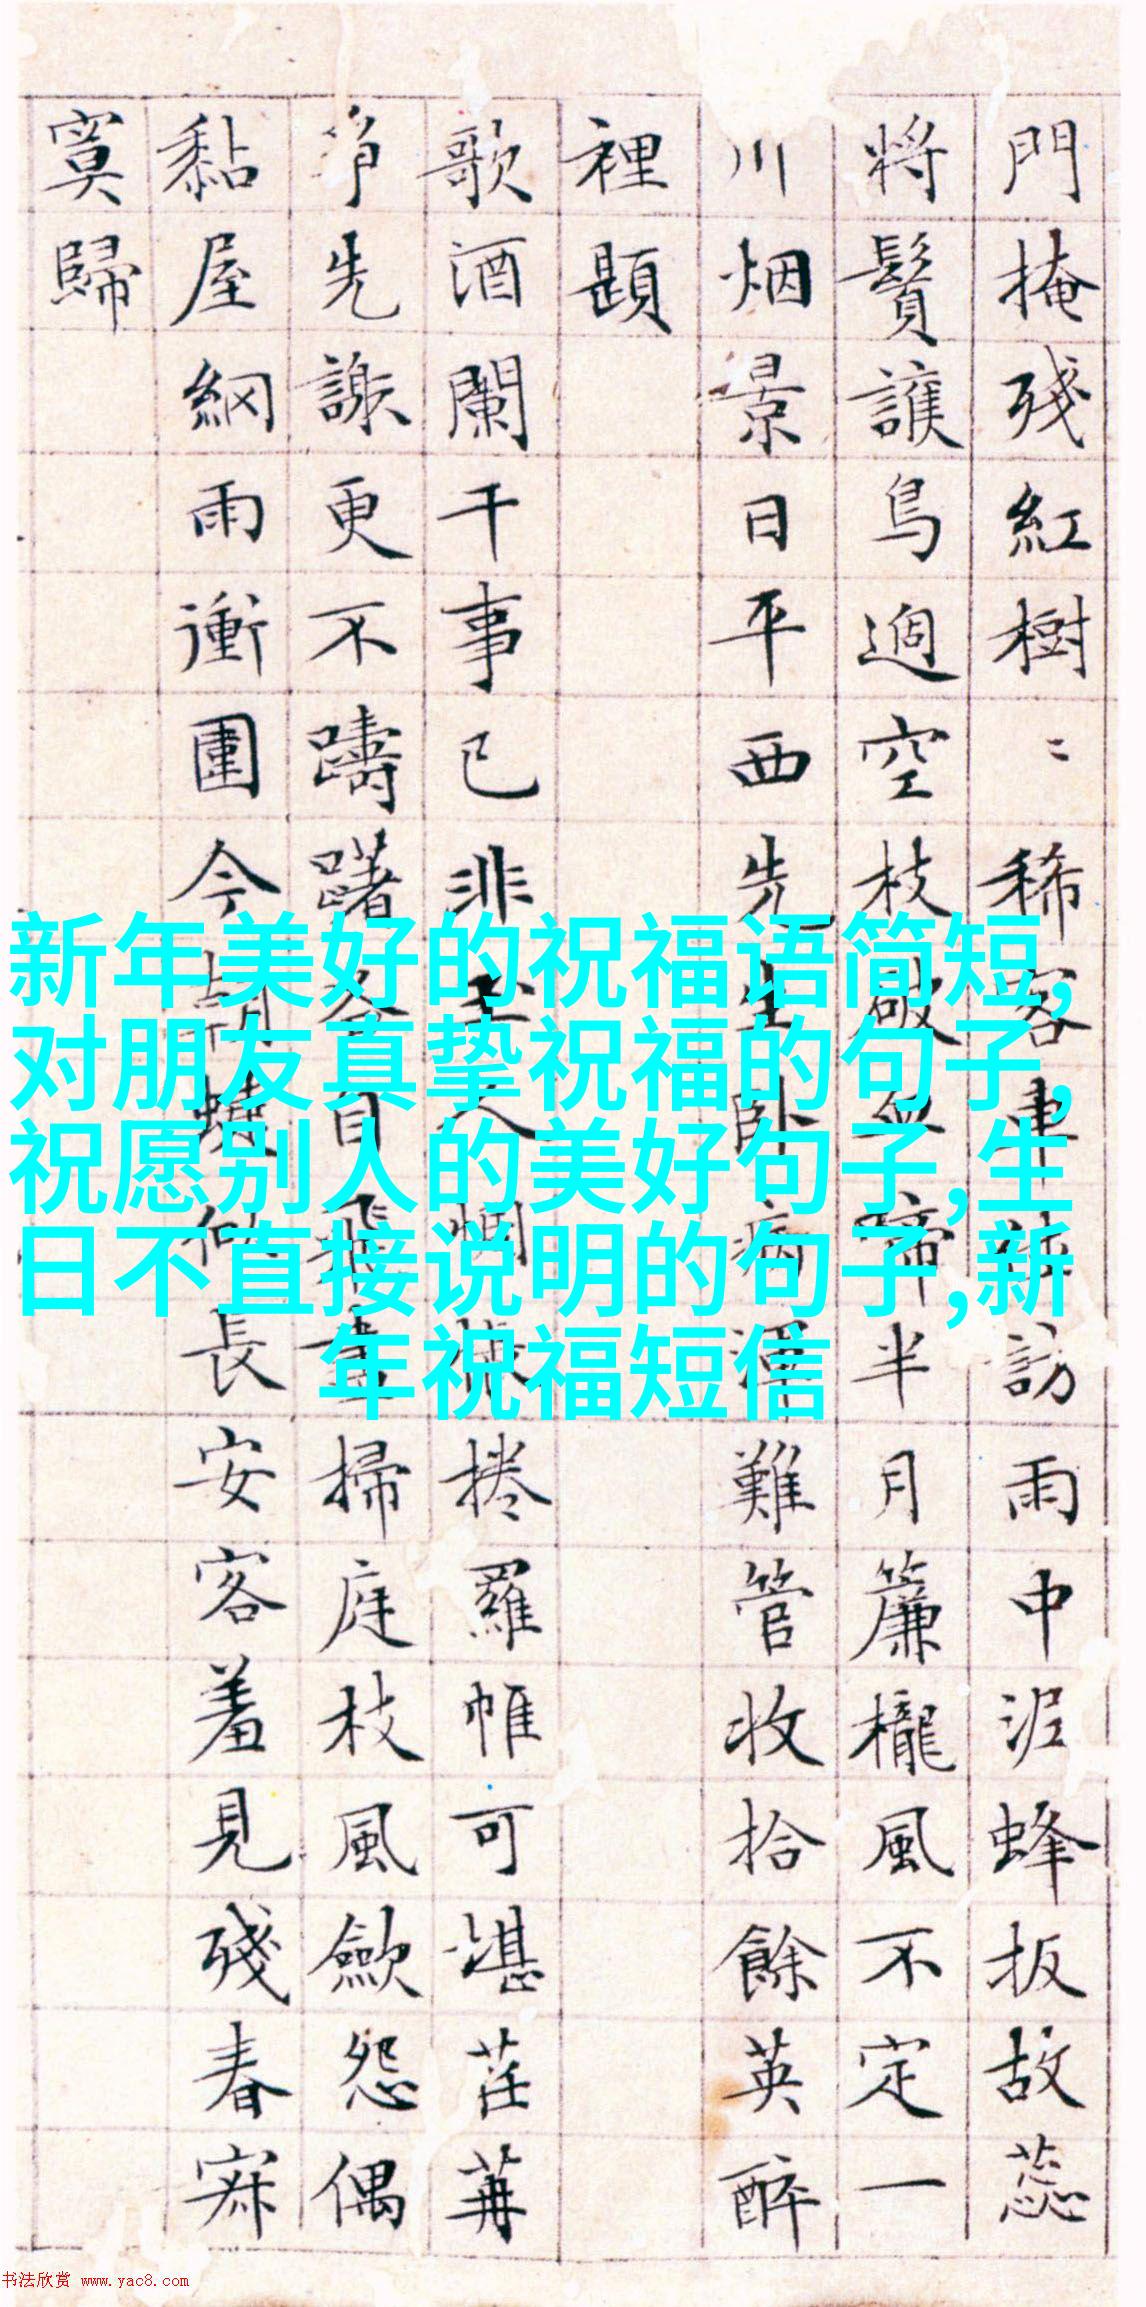 門掩殘紅樹〻稀客車訪雨中泥蜂扳故蕊
將鬢護鳥過空枝破無啼半月簾櫳風不定一
川烟景日平西先生卧病渾難管收拾餘英醉
裡題
歌酒闌干事已非玉人惆悵捲羅帷可堪荏苒
爭先謝更不躊躇各自飛掃庭枝風歛怨偶
黏屋網雨衝圍今朝似長安客羞見殘春寂
寞歸
新年美好的祝福语简短,
对朋友真挚祝福的句子,
祝愿别人的美好句子,生
日不直接说明的句子,新
年祝福短信
书法欣赏 www.yac8.com